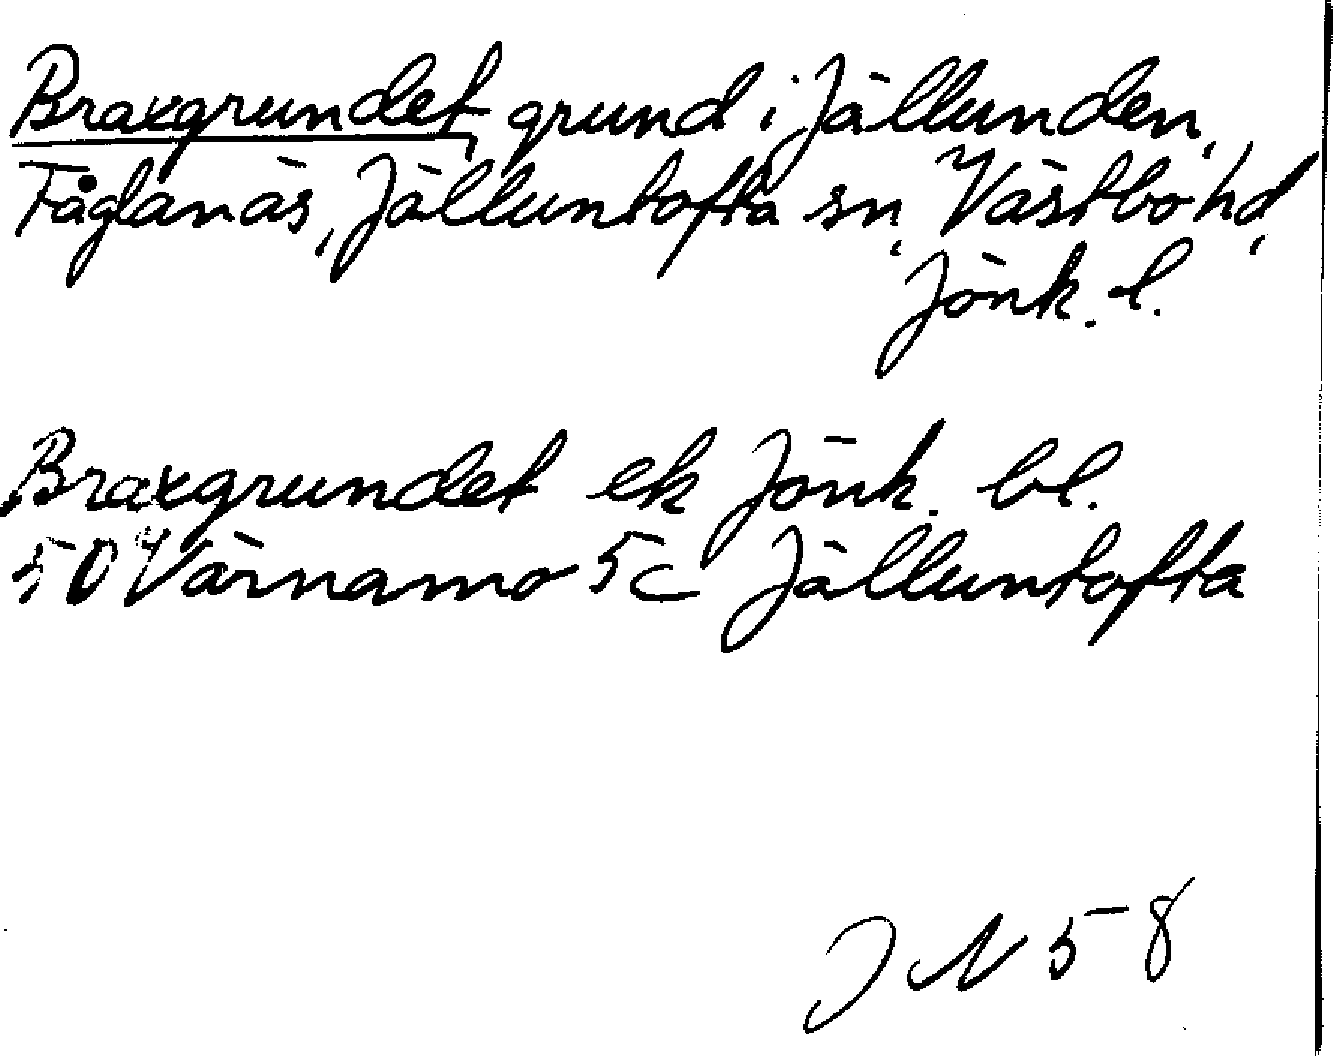 Braxgrundet, grund i Jällunden,
Fåglanäs, Jälluntofta sn, Västbo hd,
Jönk. l.
Braxgrundet ek Jönk. bl.
50 Värnamo 5c Jälluntofta
JN 58